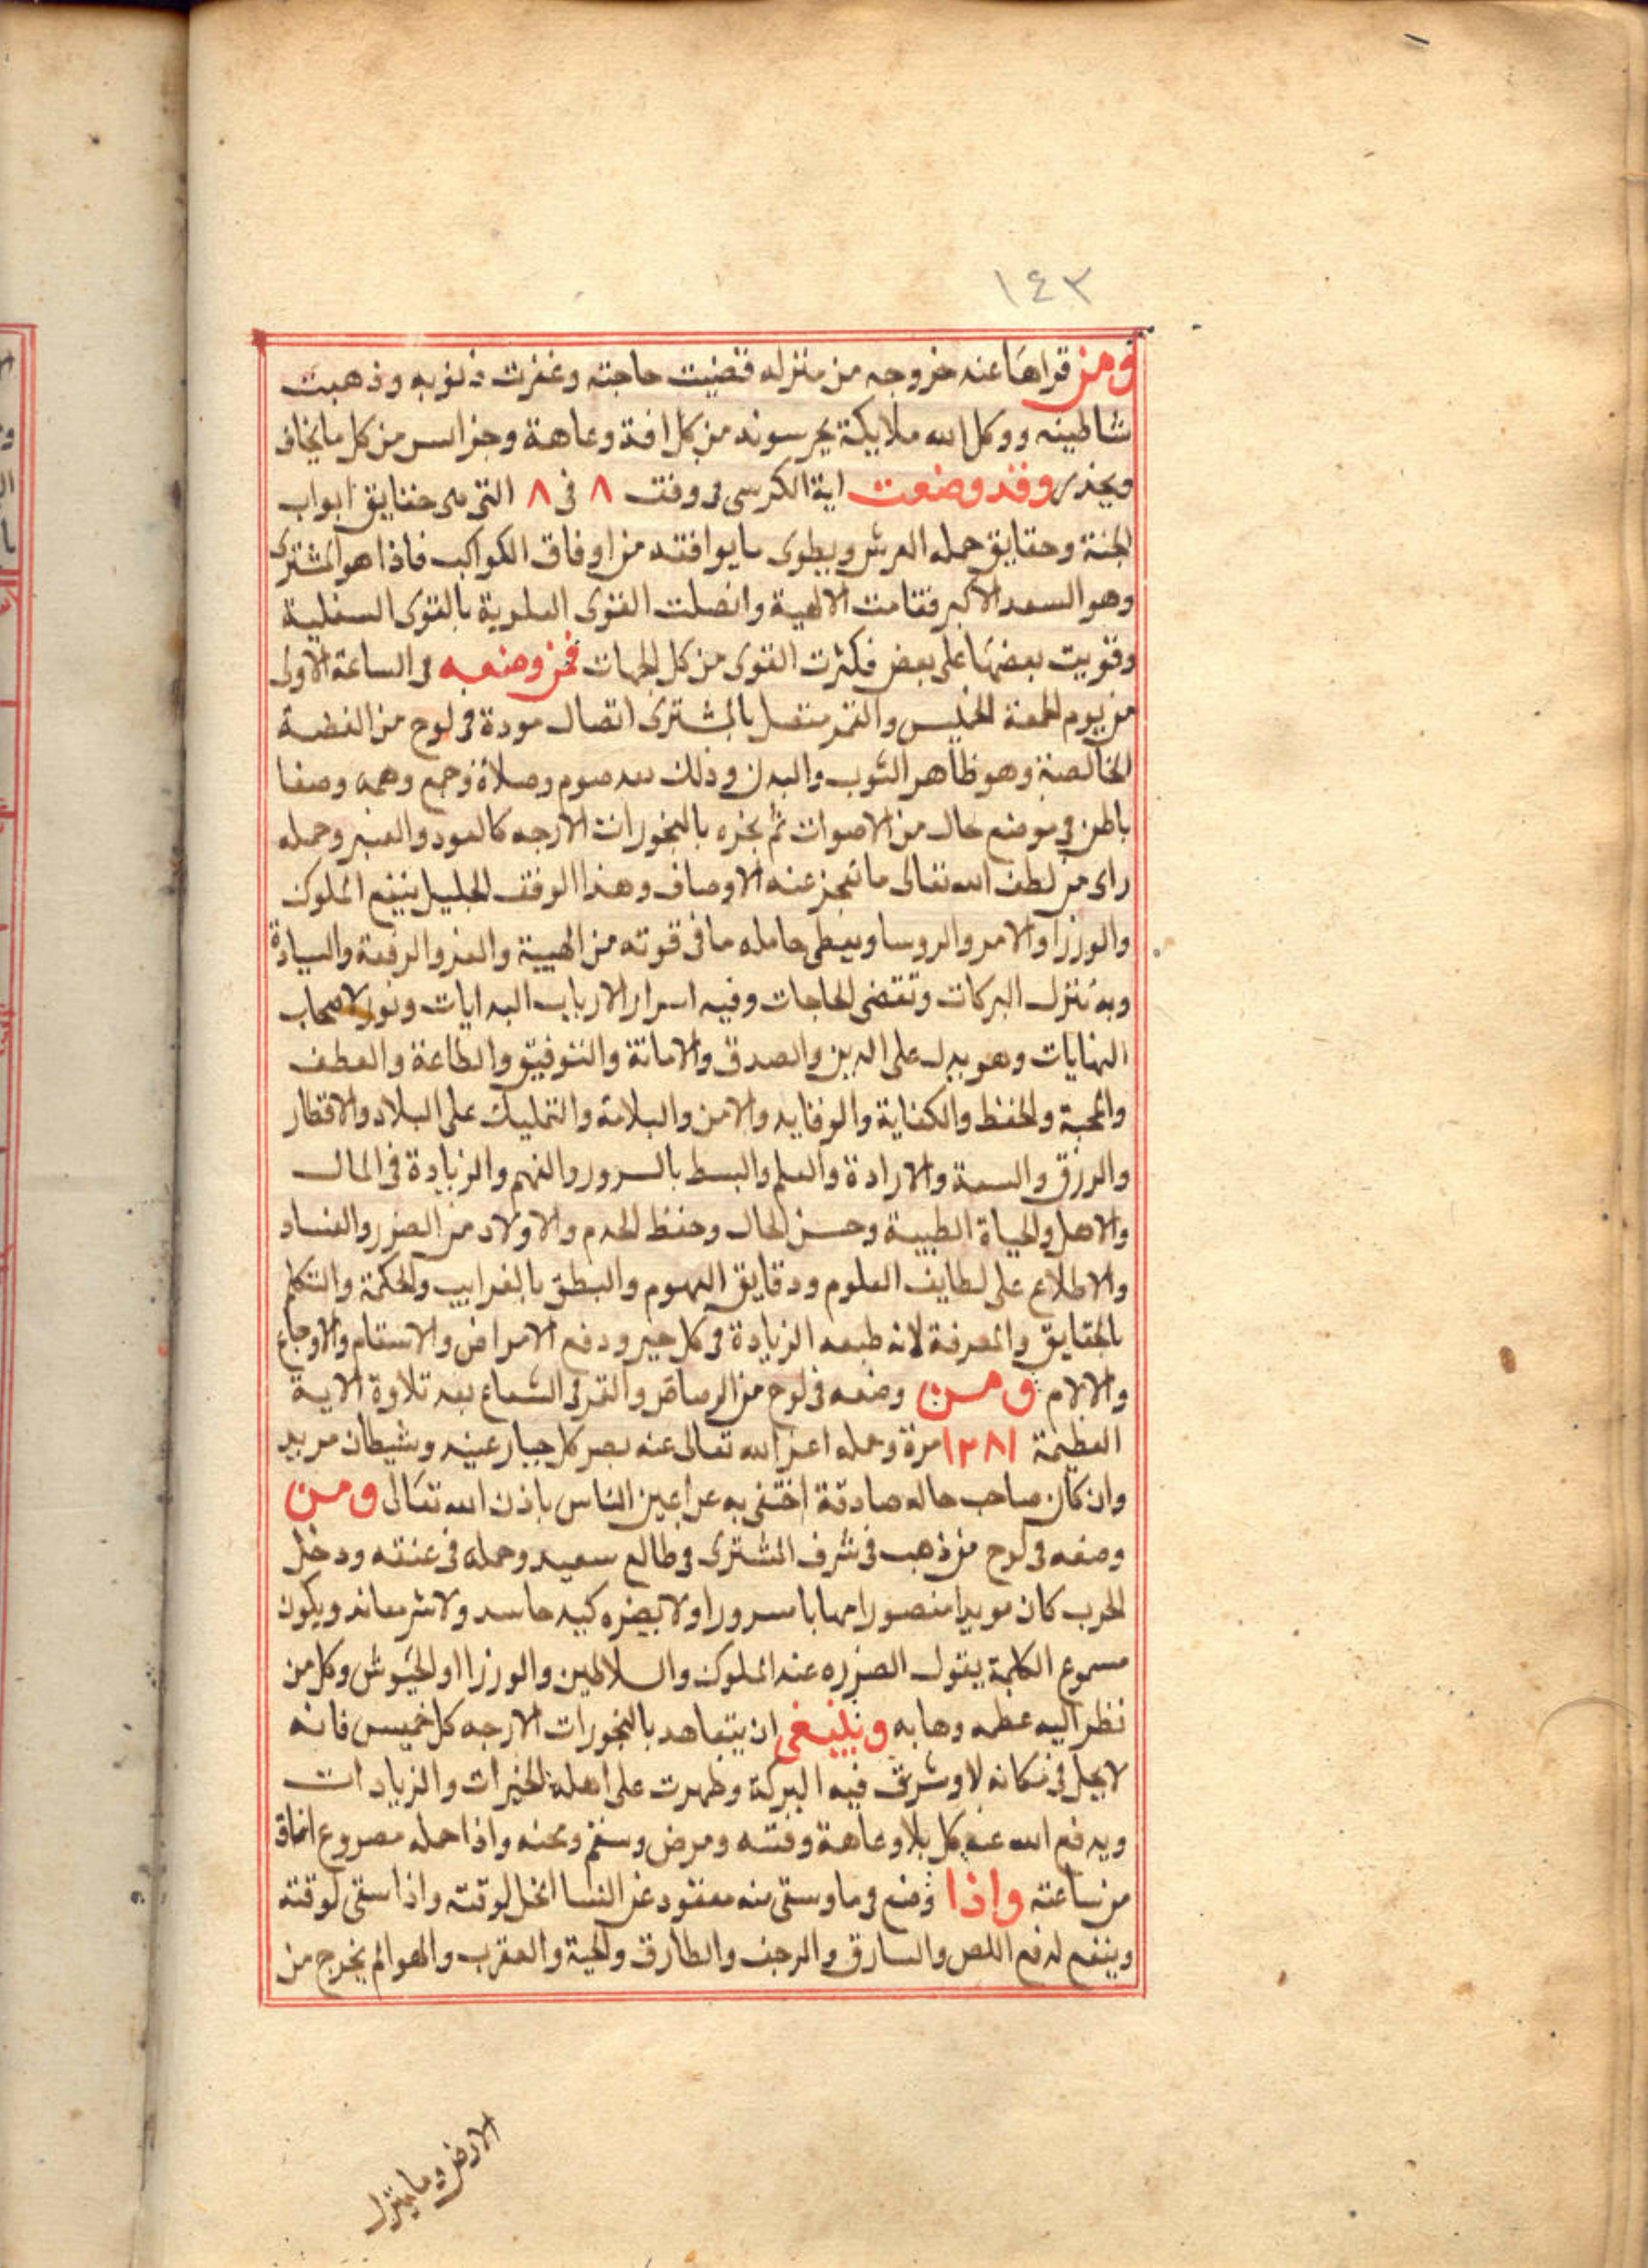 ١٤٣
ومن قراها عند خروجه من منزله قضيت حاجته وغفرت ذنوبه وذهبت
شاطينه ووكل الله ملايكة يحرسونه من كل افة وعاهة وحراسر من كل ما يخاف
ويحذر وقد وضعت اية الكرسي في وفق ٨ في ٨ التي هي حقايق ابواب
الجنة وحقايق حملة العرش ويطوى ما يوافقه من اوفاق الكواكب فاذا هو المشترى
وهو السعد الاكبر فقامت الالهية واتصلت القوى العلوية بالقوى السفلية
وقويت بعضها على بعض فكثرت القوى من كل الجهات فمن وضعه في الساعة الاولى
من يوم الجمعة الخميس والقمر متصل بالمشترى اتصال مودة في لوح من الفضة
الخالصة وهو ظاهر الثوب والبدن وذلك بعد صوم وصلاة وجمع وهمة وصفا
باطن في موضع خال من الاصوات ثم بخره بالبخورات الارجه كالعود والعنبر وحمله
راى من لطف الله تعالى ما تعجز عنه الاوصاف وهذا الوفق الجليل ينفع الملوك
والوزرا والامر والروسا ويعطى حامله ما في قوته من الهيبة والعز والرفعة والسيادة
وبه تنزل البركات وتقضى الحاجات وفيه اسرار الارباب البدايات ونور لاصحاب
النهايات وهو يدل على الدين والصدق والامانة والتوفيق والطاعة والعطف
والمحبة والحفظ والكفاية والوقايه والامن والسلامة والتمليك على البلاد والاقطار
والرزق والسعة والارادة والعلم والبسط بالسرور والفهم والزيادة في المال
والاهل والحياة الطيبة وحسن الحال وحفظ الخدم والاولاد من الضرر والفساد
والاطلاع على لطايف العلوم ودقايق الفهوم والنطق بالغرايب والحكمة والتكلم
بالحقايق والمعرفة لانه طبعه الزيادة في كل خير ودفع الامراض والاسقام والاوجاع
والالام ومن وضعه في لوح من الرصاص والقمر في الشعاع بعد تلاوة الاية
العظيمة ١٢٨١ مرة وحمله اعز الله تعالى عنه بصر كل جبار عنيد وشيطان مريد
وان كان صاحب حاله صادقة اختفى به عن اعين الناس باذن الله تعالى ومن
وضعه في لوح من ذهب في شرف المشترى في طالع سعيد وحمله في عنقه ودخل
الحرب كان مويدا منصورا مهابا مسرورا ولا يضره كيد حاسد ولا شر معاند ويكون
مسموع الكلمة يقول الضرره عند الملوك والسلاطين والوزرا او الجيوش وكل من
نظر اليه عظمه وهابه وينبغى ان يتعاهد بالبخورات الارجه كل خميس فانه
لا يحل في مكانه الا وشرق فيه البركة وظهرت على اهله الخيرات والزيادات
ويدفع الله عنه كل بلا وعاهة وفتنه ومرض وسقم ومحنه واذا حمله مصروع افاق
من ساعته واذا وضع في ما وسقى منه معقود عن النسا انحل لوقته واذا سقى لوقته
وينفع لدفع اللص والسارق والمرجف والطارق والحية والعقرب والهوام يخرج من
الارض وما ينزل